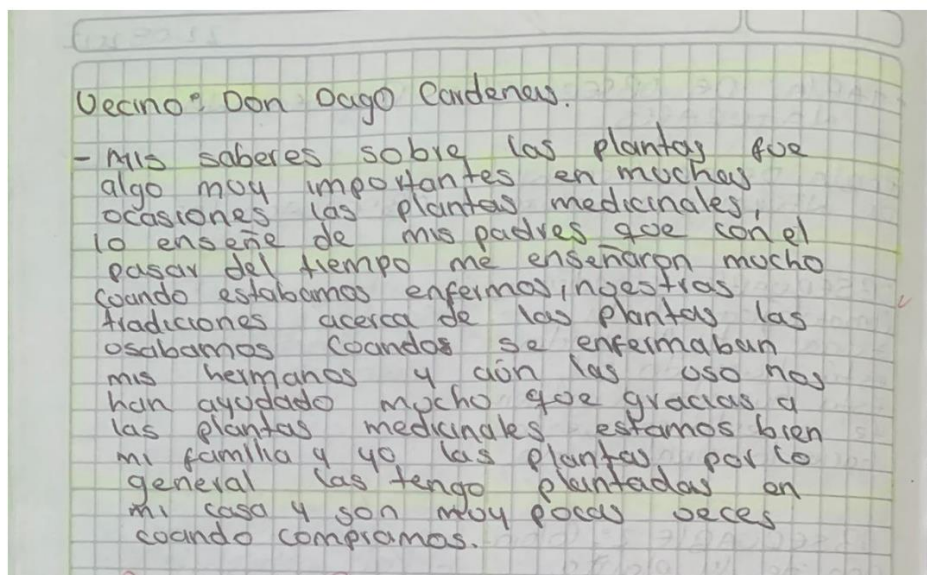 Vecino: Don Dago Cardenas.
- Mis saberes sobre las plantas fue
algo muy importantes en muchas
ocasiones las plantas medicinales,
lo enseñe de mis padres que con el
pasar del tiempo me enseñaron mucho
cuando estabamos enfermos, nuestras
tradiciones acerca de las plantas las
usabamos cuandos se enfermaban
mis hermanos y aún las uso nos
han ayudado mucho que gracias a
las plantas medicinales estamos bien
mi familia y yo las plantas por lo
general las tengo plantadas en
mi casa y son muy pocas veces
cuando compramos.